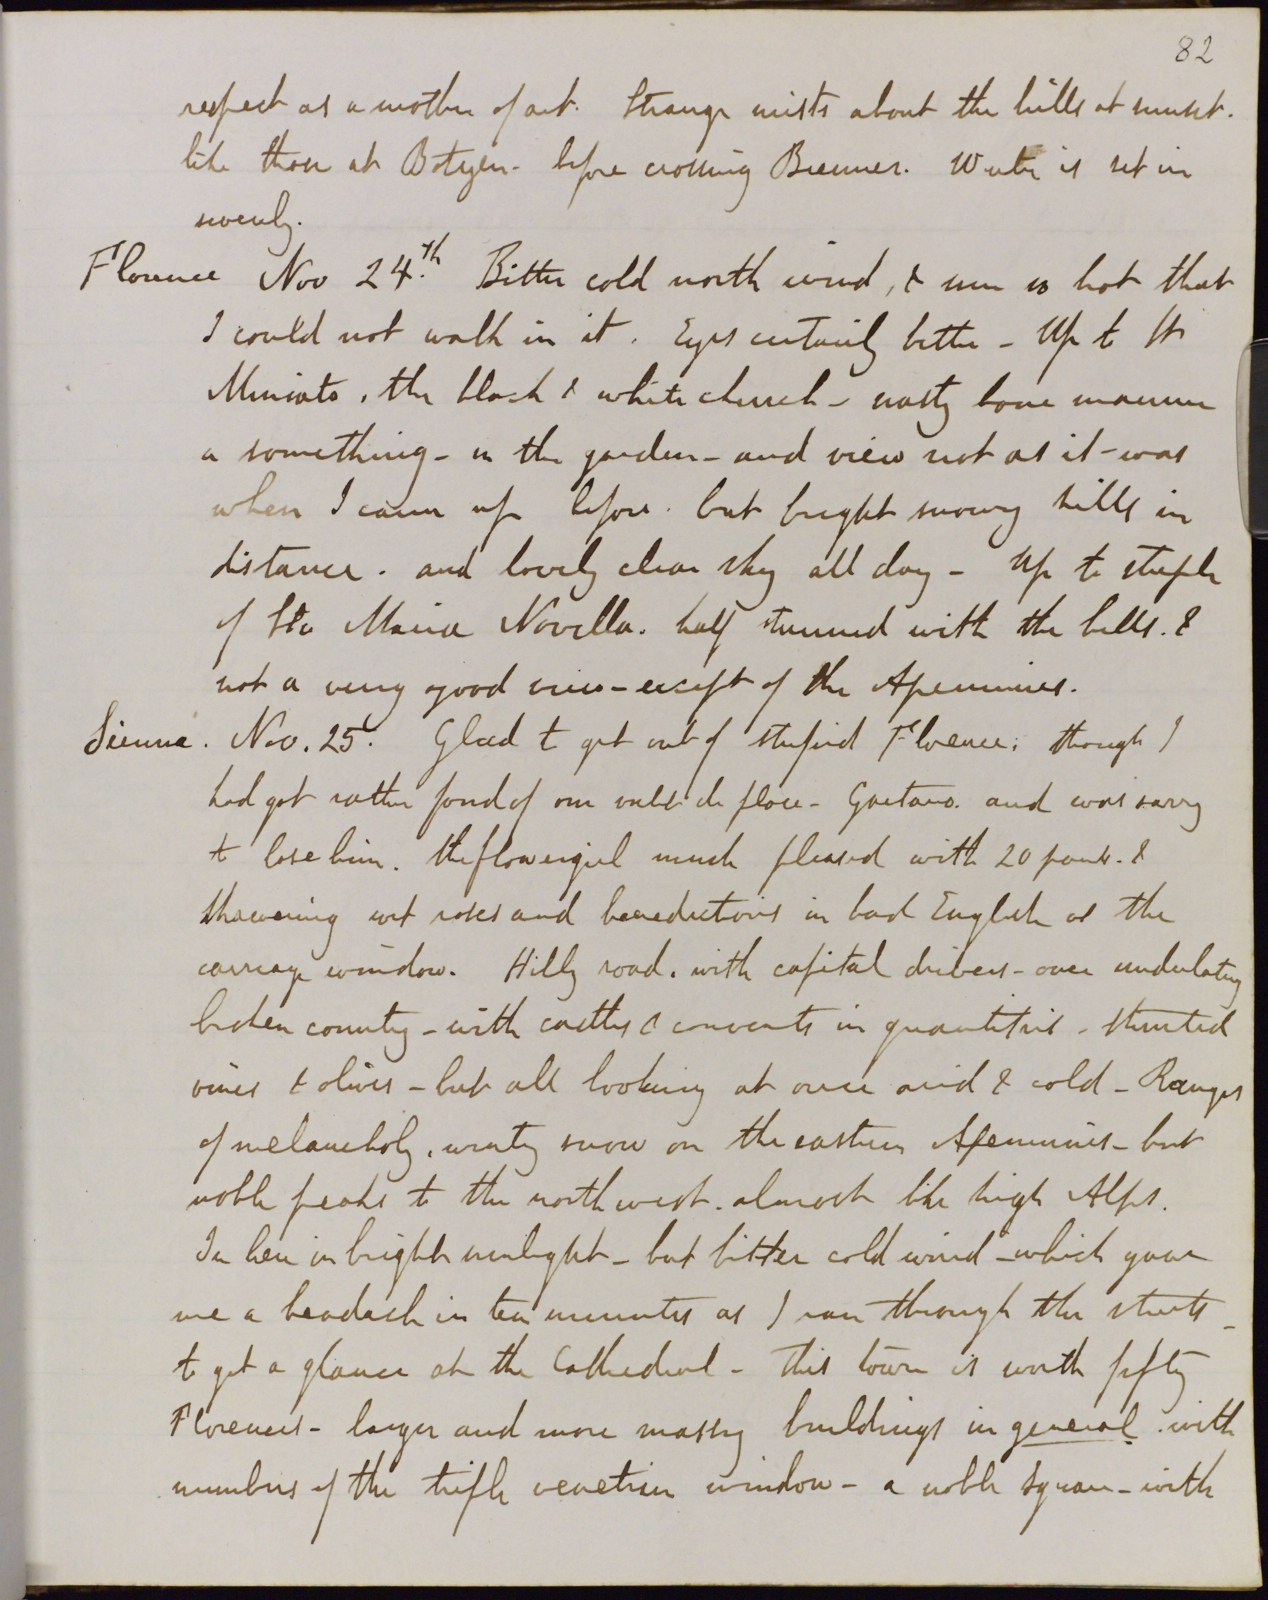 82
respect as a mother of art. Strange mists about the hills at sunset.
like those at Botzen - before crossing Brenner. Winter is set in
severely.
Florence Nov 24.th Bitter cold north wind, & sun so hot that
I could not walk in it. Eyes certainly better - Up to St
Miniato, the black & white church - nasty bone
a something - in the garden - and view not as it - was
when I came up before. but bright snowy hills in
distance. and lovely clear sky all day - Up to steeple
of Sta Maria Novella. half stunned with the bells. &
not a very good view - except of the Apennines.
Sienna. Nov. 25. Glad to get out of stupid Florence; though I
had got rather fond of our valet de place - Gaetano. and was sorry
to lose him. the flowergirl much pleased with 20 pauls. &
showering wet roses and benedictions in bad English at the
carriage window. Hilly road. with capital drivers - over undulating
broken country - with castles & convents in quantities - stunted
vines & olives - but all looking at once arid & cold - Ranges
of melancholy, wintry snow on the eastern Apennines - but
noble peaks to the north west. almost like high Alps.
In here in bright sunlight - but bitter cold wind - which gave
me a headach in ten minutes as I ran through the streets -
to get a glance at the Cathedral - This town is worth fifty
Florences - larger and more massy buildings in general. with
numbers of the triple venetian window - a noble square - with